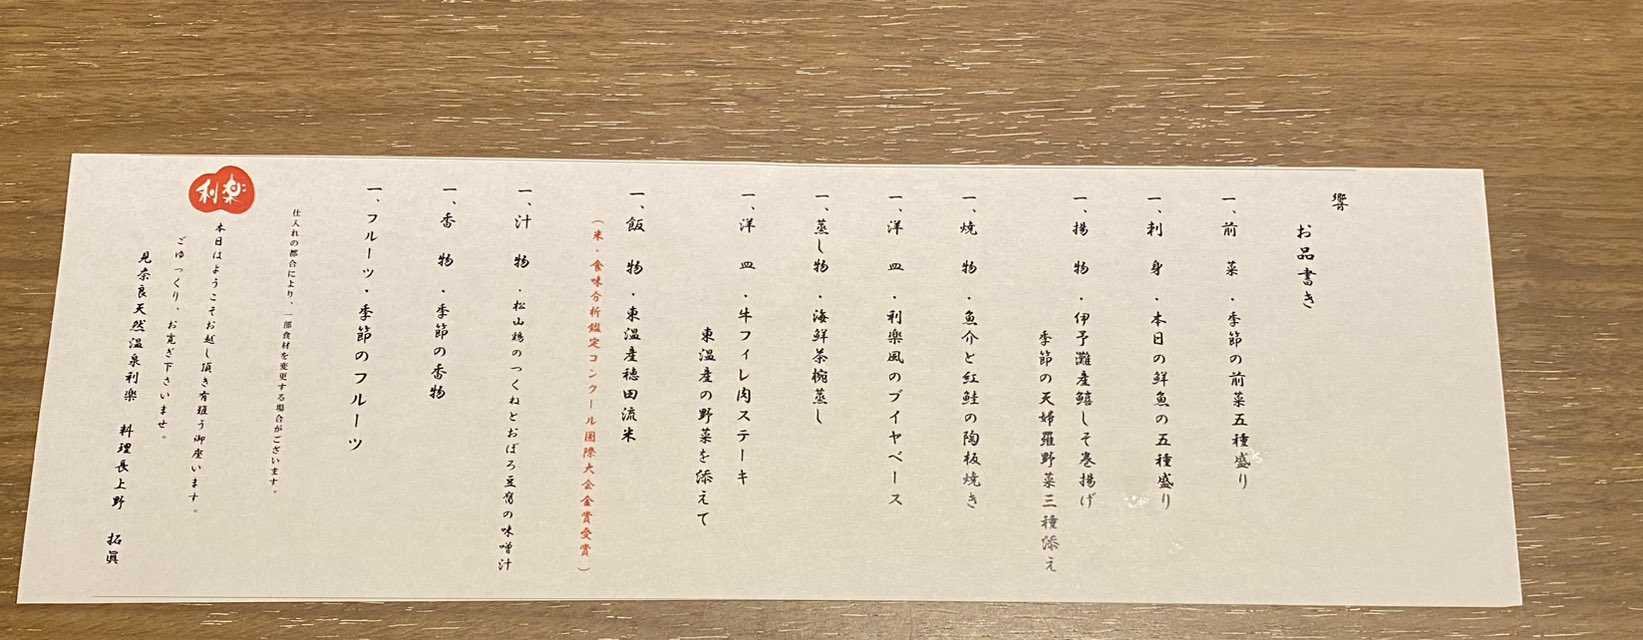 響
お品書き
一、前　菜　・季節の前菜五種盛り
一、刺　身　・本日の鮮魚の五種盛り
一、揚　物　・伊予灘産鱚しそ巻揚げ
季節の天婦羅野菜三種添え
一、焼　物　・魚介と紅鮭の陶板焼き
一、洋　皿　・利楽風のブイヤベース
一、蒸し物・海鮮茶椀蒸し
一、洋　皿　・牛フィレ肉ステーキ
東温産の野菜を添えて
一、飯　物・東温産穂田流米
（米・食味分析鑑定コンクール国際大会金賞受賞）
一、汁　物　・松山鶏のつくねとおぼろ豆腐の味噌汁
一、香　物　・季節の香物
一、フルーツ・季節のフルーツ
仕入れの都合により、一部食材を変更する場合がございます。
利楽
本日はようこそお越し頂き有難う御座います。
ごゆっくり、お寛ぎ下さいませ。
見奈良天然温泉利楽　料理長上野　拓眞